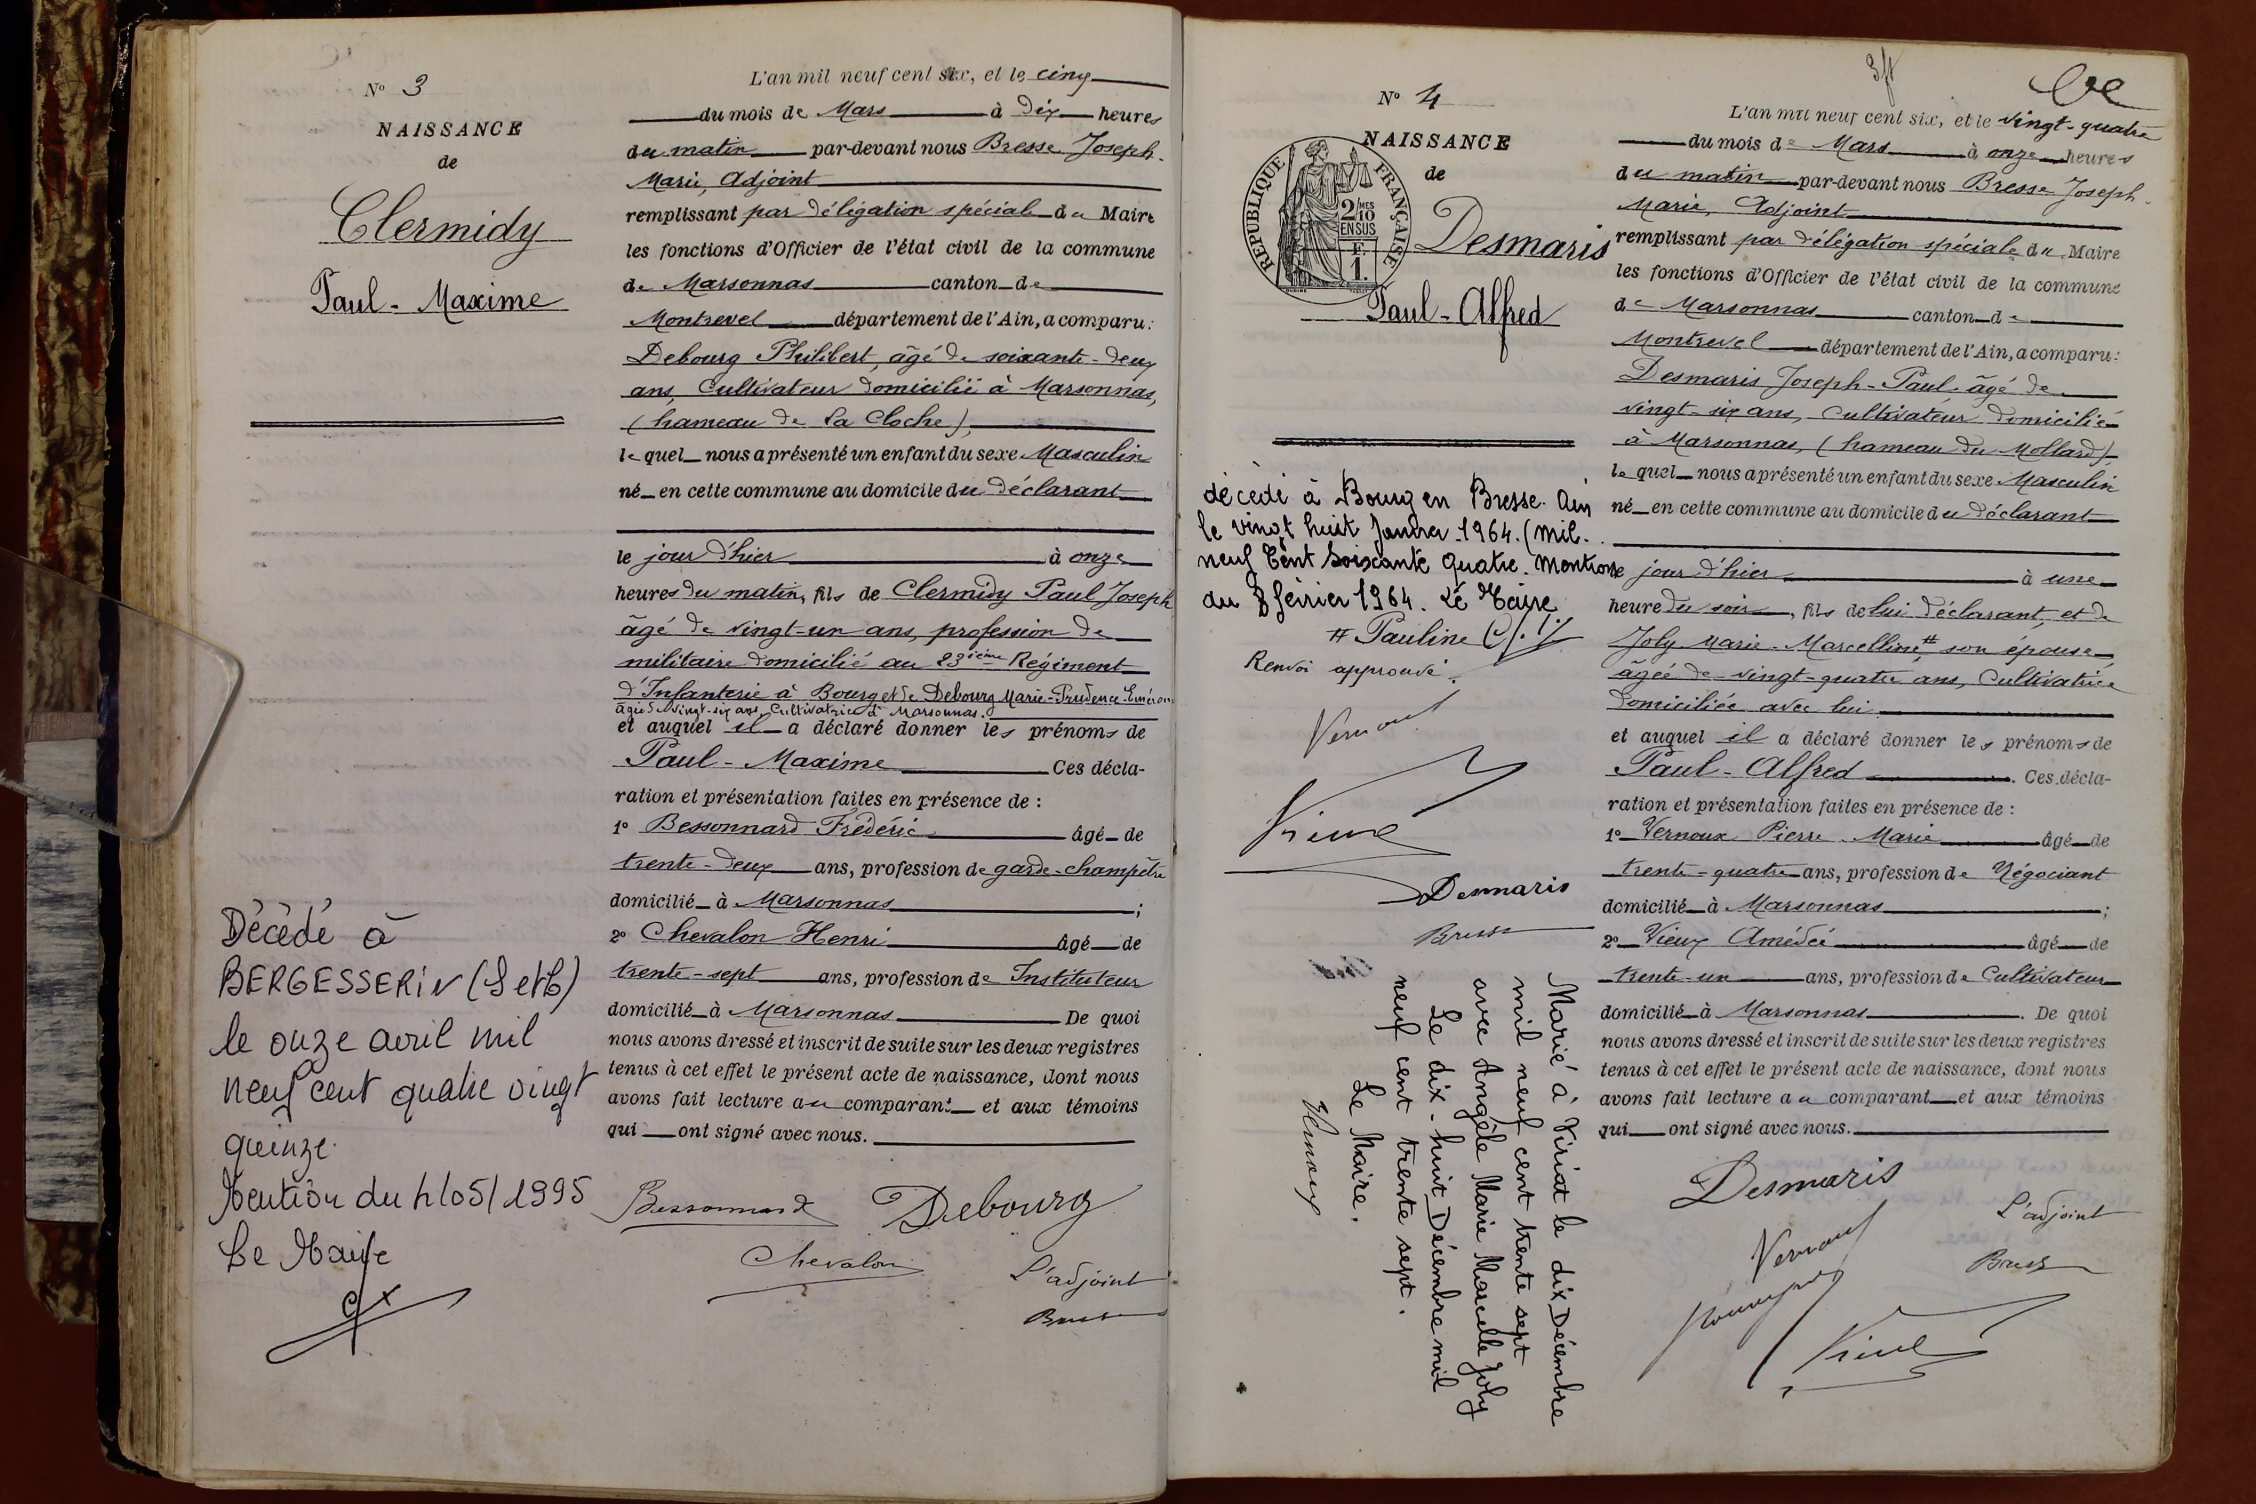 N° 3
NAISSANCE
de
Clermidy
Paul - Maxime
L'an mil neuf cent six, et le cinq
du mois de Mars à dix heures
du matin par-devant nous Bresse Joseph-
Marie, Adjoint
remplissant par délégation spéciale du Maire
les fonctions d'Officier de l'état civil de la commune
de Marsonnas canton de
Montrevel département de l'Ain, a comparu :
Debourg Philibert, âgé de soixante-deux
ans, Cultivateur domicilié à Marsonnas,
(hameau de la Cloche),
lequel nous a présenté un enfant du sexe Masculin
né en cette commune au domicile du déclarant
le jour d'hier à onze
heures du matin, fils de Clermidy Paul Joseph
âgé de vingt-un ans, profession de
militaire domicilié au 23ième Régiment
d'Infanterie à Bourg et de Debourg Marie-Prudence
âgée de vingt-six ans, Cultivatrice à Marsonnas.
et auquel il a déclaré donner les prénoms de
Paul - Maxime Ces décla-
ration et présentation faites en présence de :
1° Bessonnard Frédéric âgé de
trente-deux ans, profession de garde-champêtre
domicilié à Marsonnas ;
2° Chevalon Henri âgé de
trente-sept ans, profession de Instituteur
domicilié à Marsonnas De quoi
nous avons dressé et inscrit de suite sur les deux registres
tenus à cet effet le présent acte de naissance, dont nous
avons fait lecture au comparant et aux témoins
qui ont signé avec nous.
Bessonnard Debourg
Chevalon L'adjoint
Bresse
Décédé à
BERGESSERIN (S et L)
le onze avril mil
neuf cent quatre vingt
quinze.
Mention du 4/05/1995
Le Maire
N° 4
NAISSANCE
de
Desmaris
Paul - Alfred
RÉPUBLIQUE FRANÇAISE
2/10MES
EN SUS
F.
1.
L'an mil neuf cent six, et le vingt-quatre
du mois de Mars à onze heures
du matin par-devant nous Bresse Joseph-
Marie, Adjoint
remplissant par délégation spéciale du Maire
les fonctions d'Officier de l'état civil de la commune
de Marsonnas canton de
Montrevel département de l'Ain, a comparu :
Desmaris Joseph-Paul, âgé de
vingt-six ans, Cultivateur domicilié
à Marsonnas, (hameau du Mollard)
lequel nous a présenté un enfant du sexe Masculin
né en cette commune au domicile du déclarant
le jour d'hier à une
heure du soir, fils de lui déclarant, et de
Joly Marie-Marcelline # son épouse
âgée de vingt-quatre ans, Cultivatrice
domiciliée avec lui
et auquel il a déclaré donner les prénoms de
Paul - Alfred . Ces décla-
ration et présentation faites en présence de :
1° Vernoux Pierre-Marie âgé de
trente-quatre ans, profession de Négociant
domicilié à Marsonnas ;
2° Vieux Amédée âgé de
trente-un ans, profession de Cultivateur
domicilié à Marsonnas . De quoi
nous avons dressé et inscrit de suite sur les deux registres
tenus à cet effet le présent acte de naissance, dont nous
avons fait lecture au comparant et aux témoins
qui ont signé avec nous.
Desmaris
L'adjoint
Vernoux
Bresse
Vieux
décédé à Bourg en Bresse. Ain
le vingt huit Janvier 1964. (mil
neuf Cent Soixante Quatre. Mention
du 8 février 1964. Le Maire
# Pauline
Renvoi approuvé.
Vernoux
Vieux
Desmaris
Bresse
Marié à Viriat le dix Décembre
mil neuf cent trente sept
avec Angèle Marie Marcelle Joly
Le dix-huit Décembre mil
neuf cent trente sept.
Le Maire.
Vernoux